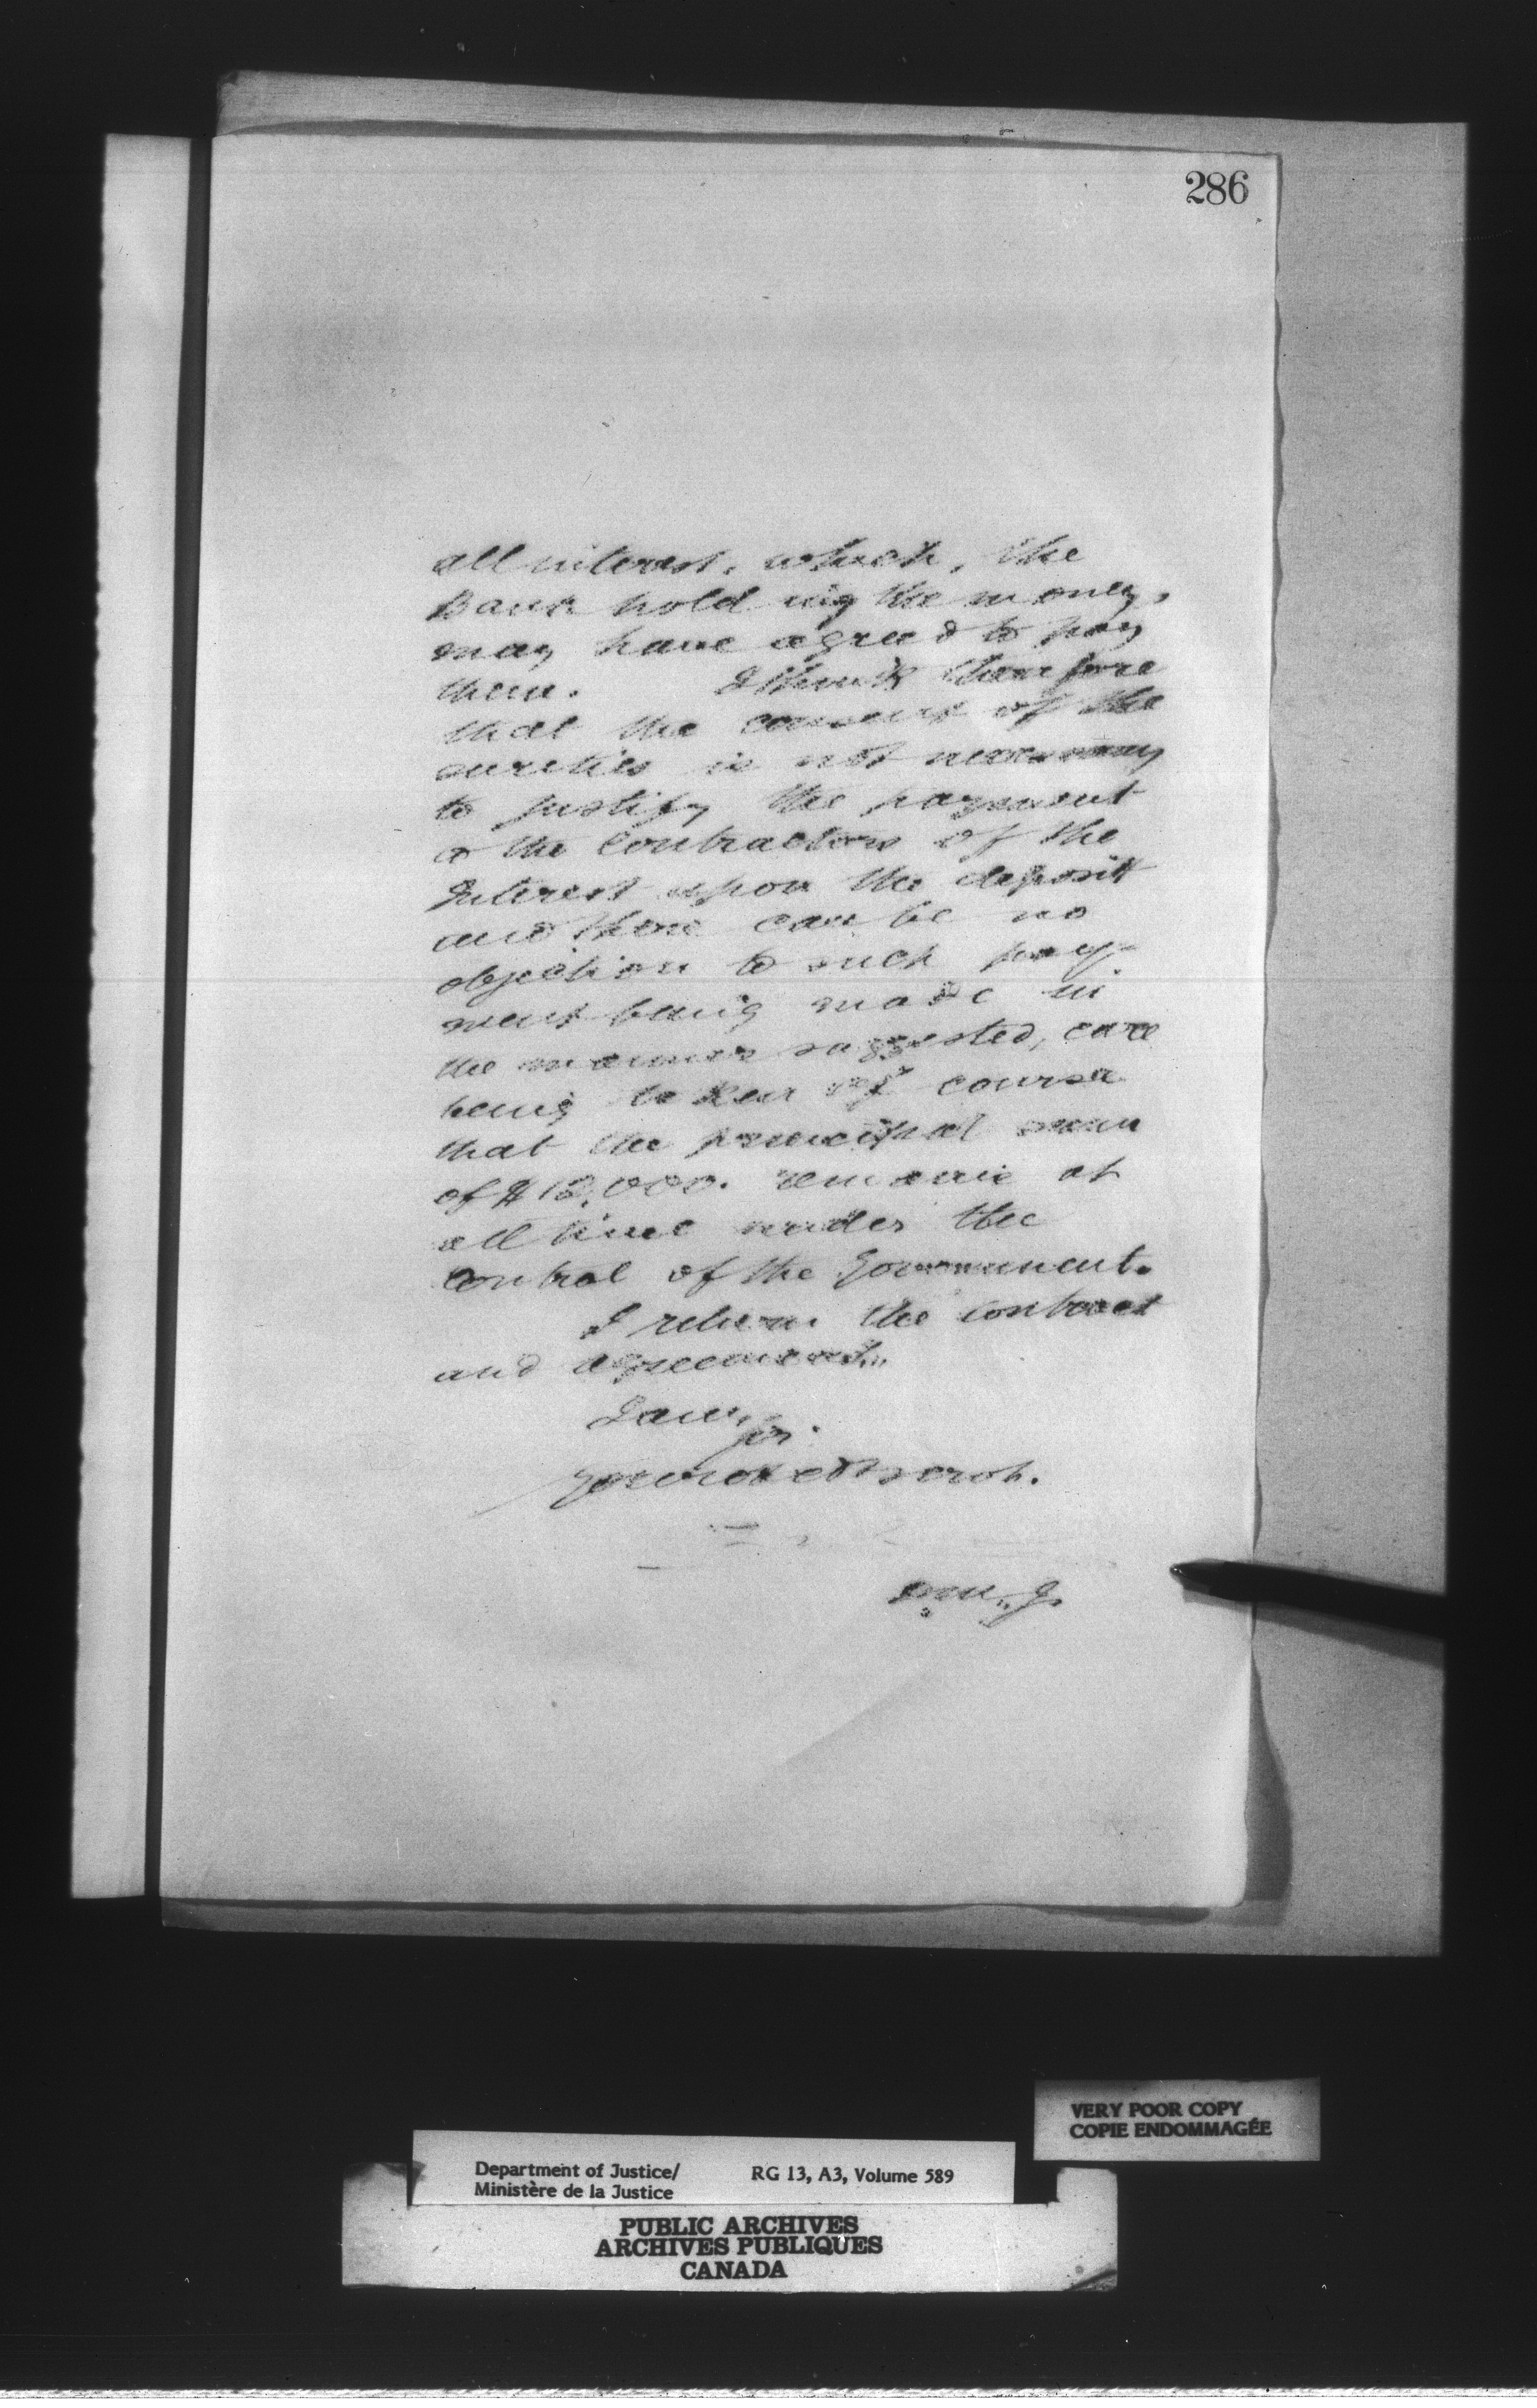 286
all interest, which, the
Bank holding the money,
may have agreed to pay
them. I think therefore
that the consent of the
sureties is not necessary
to justify the payment
to the Contractors of the
Interest upon the deposit
and there can be no
objection to such pay-
ment being made in
the manner suggested, care
being taken of course
that the principal sum
of $12,000. remain at
all time under the
Control of the Government.
I return the contract
and agreement.
I am,
Sir.
Your obed. serv't.
D.M.J.
VERY POOR COPY
COPIE ENDOMMAGÉE
Department of Justice/ RG 13, A3, Volume 589
Ministère de la Justice
PUBLIC ARCHIVES
ARCHIVES PUBLIQUES
CANADA